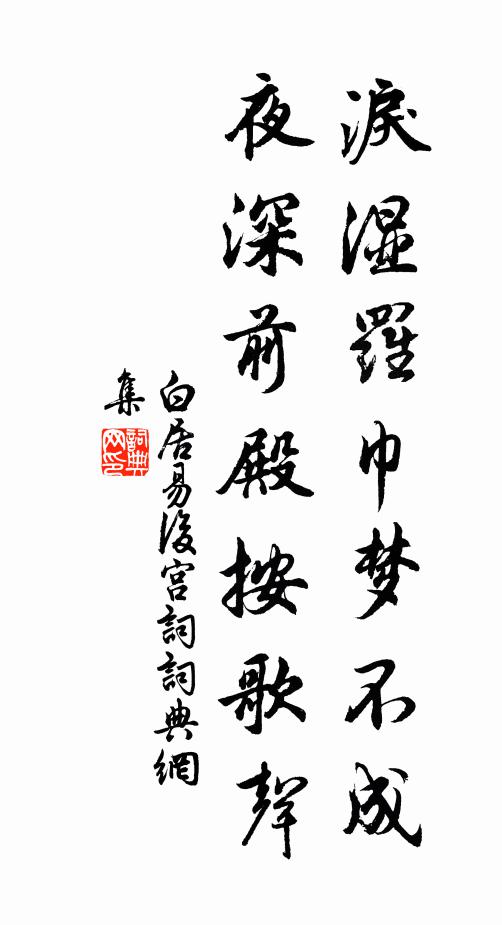 淚湿羅巾梦不成
夜深前殿按歌聲
白居易後宫詞詞典網
集
詞典
网印